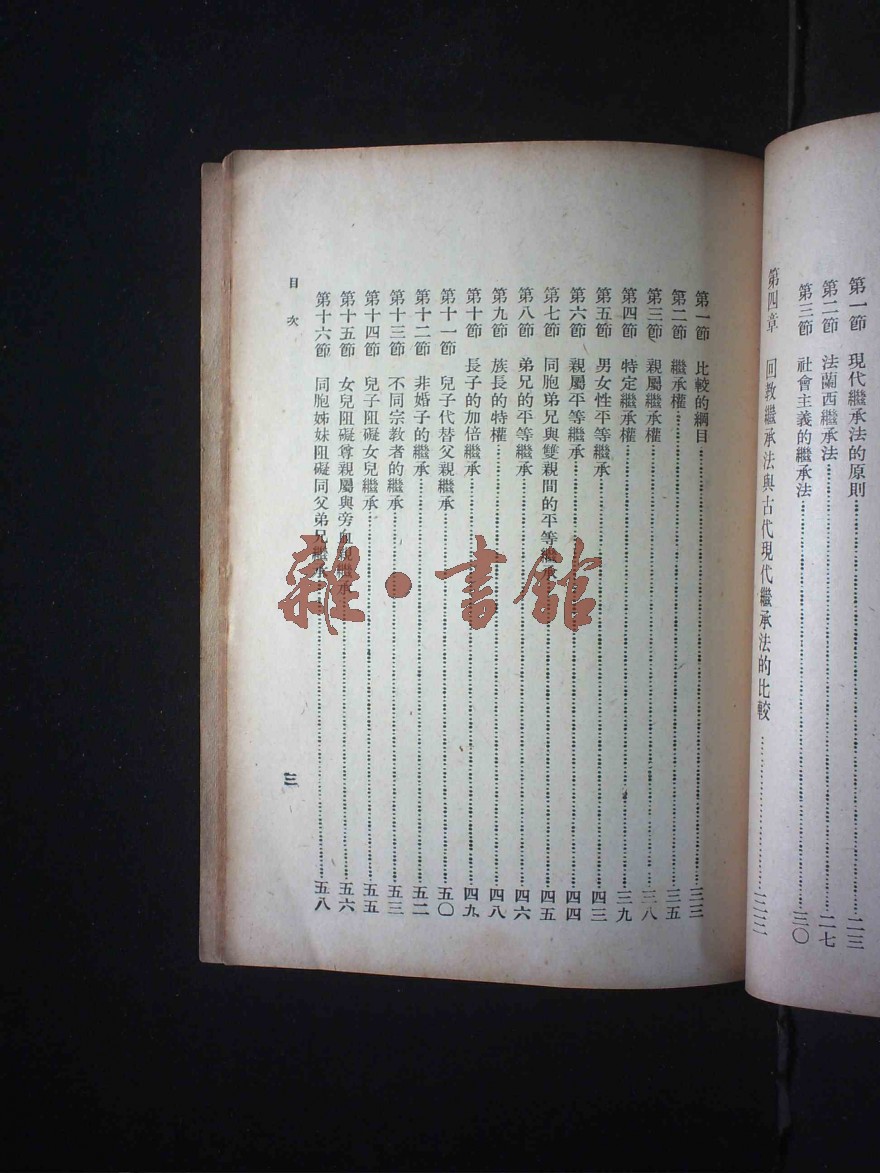 第一節 現代繼承法的原則……二三
第二節 法蘭西繼承法……二七
第三節 社會主義的繼承法……三〇
第四章 回教繼承法與古代現代繼承法的比較……三三
第一節 比較的綱目……三三
第二節 繼承權……三五
第三節 親屬繼承權……三八
第四節 特定繼承權……三九
第五節 男女性平等繼承……四三
第六節 親屬平等繼承……四四
第七節 同胞弟兄與雙親間的平等繼承……四五
第八節 弟兄的平等繼承……四六
第九節 族長的特權……四八
第十節 長子的加倍繼承……四九
第十一節 兒子代替父親繼承……五〇
第十二節 非婚子的繼承……五二
第十三節 不同宗教者的繼承……五三
第十四節 兒子阻礙女兒繼承……五五
第十五節 女兒阻礙尊親屬與旁血親繼承……五六
第十六節 同胞姊妹阻礙同父弟兄繼承……五八
目次
三
雜·書館